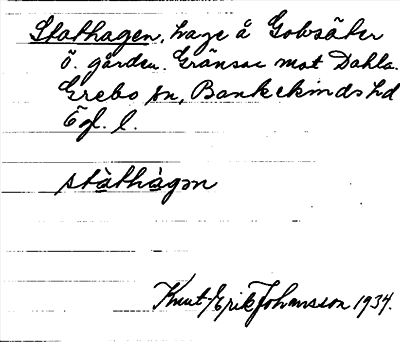 Stathagen, hage å Gobsäter
ö. gården. Gränsar mot Dahla.
Grebo sn, Bankekinds hd
Ögl. l.
stàthàgən
Knut-Erik Johansson 1934.